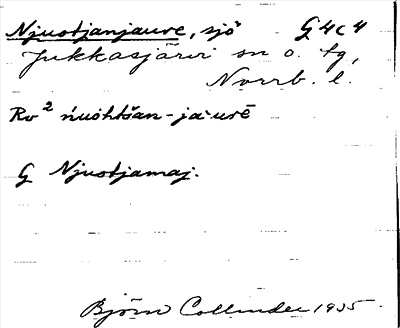 Njuotjanjaure, sjö G 4 c 4
Jukkasjärvi sn o. tg,
Norrb. l.
Ro² ńuòhtšan-jaúrē
G Njuotjamaj.
Björn Collinder 1935.